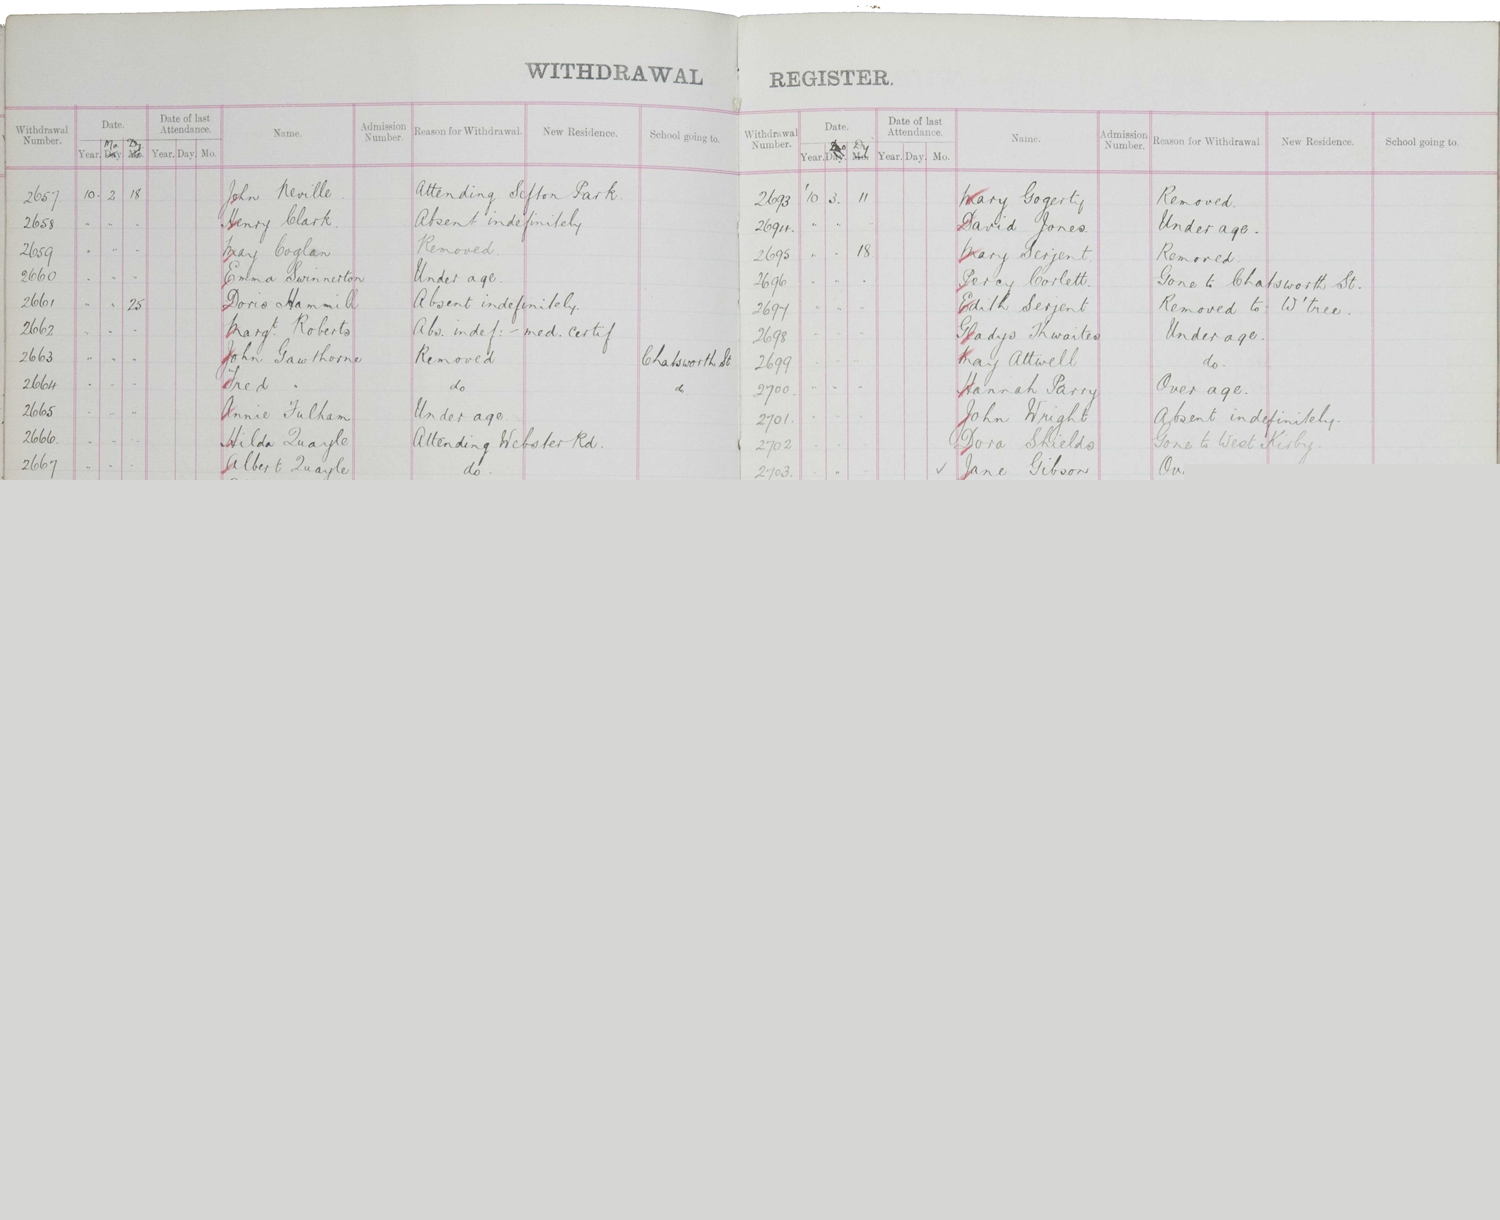 WITHDRAWAL
Withdrawal Number. Date. Date of last Attendance. Name. Admission Number. Reason for Withdrawal. New Residence. School going to.
Year. Mo. Dy Year. Day. Mo.
2657 10 - 2 18 John Neville. Attending Sefton Park.
2658 " " " Henry Clark. Absent indefinitely
2659 " " " May Coglan Removed.
2660 " " " Emma Swinnerton Under age.
2661 " " 25 Doris Hammill Absent indefinitely.
2662 " " " Margt. Roberts Abs. indef: - med. certif
2663 " " " John Gawthorne Removed Chatsworth St
2664 " " " Fred " do do
2665 " " " Annie Fulham Under age.
2666. " " " Hilda Quayle Attending Webster Rd.
2667 " " " Albert Quayle do.
REGISTER.
Withdrawal Number. Date. Date of last Attendance. Name. Admission Number. Reason for Withdrawal. New Residence. School going to.
Year. Dy Year. Day. Mo.
2693 '10 3. 11 Mary Gogerty Removed.
2694. " " " David Jones. Under age.
2695 " " 18 Mary Serjent. Removed.
2696 " " " Percy Corlett. Gone to Chatsworth St.
2697 " " " Edith Serjent Removed to: W'tree.
2698 " " " Gladys Thwaites Under age.
2699 " " " May Attwell do.
2700 " " " Hannah Parry Over age.
2701. " " " John Wright Absent indefinitely.
2702 " " " Dora Shields Gone to West Kirby.
2703. " " " ✓ Jane Gibson